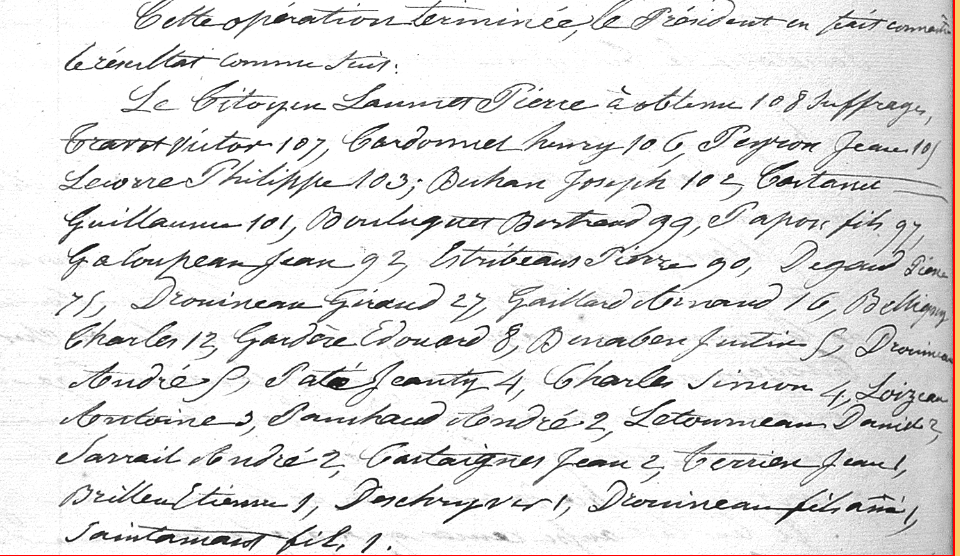 Cette opération terminée, le Président en fait connaitre
le résultat comme suit.
Le Citoyen Laumet Pierre à obtenu 108 suffrages,
Travot Victor 107, Cardonnel henry 106, Peyron Jean 105
Lecorre Philippe 103; Buhan Joseph 102, Castanet
Guillaume 101, Boulugnet Bertrand 99, Papon fils 97,
Galoupeau Jean 92, Estribeau Pierre 90, Degaud Pierre
75, Drouineau Giraud 27, Gaillard Arnaud 16, Belligny
Charles 12, Gardère Edouard 8, Binaben Justin 5, Drouineau
André 5, Paté Jeanty 4, Charles Simon 4, Loizeau
Antoine 3, André 2, Letourneau Daniel 2,
Sarrail André 2, Castaignet Jean 2, Terrien Jean 1,
Etienne 1, Deschryver 1, Drouineau fils ainé 1,
fils 1.